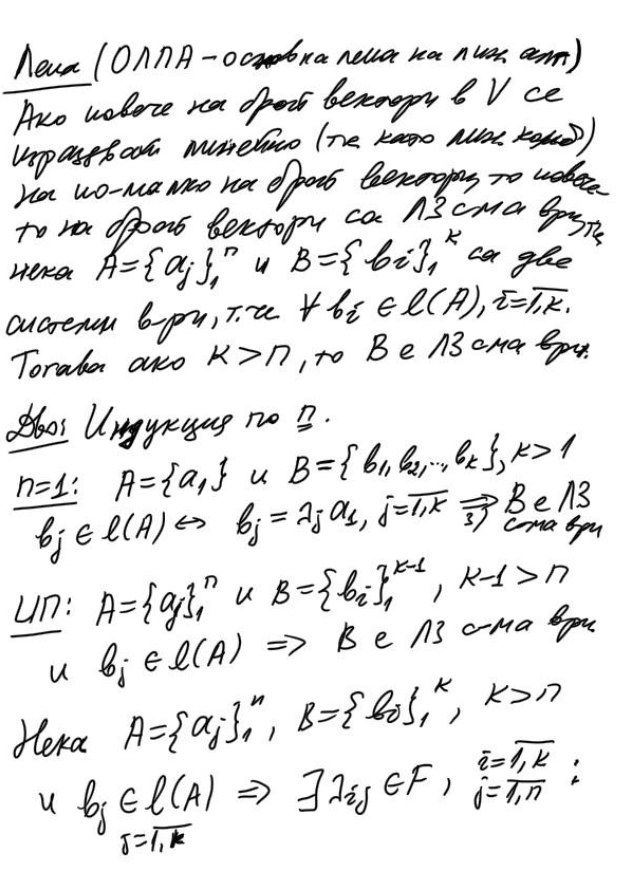 Лема (ОЛЛА – основна лема на лин. алг.)
Ако повече на брой вектори в V се
изразяват линейно (т.е. като лин. комб.)
на по-малко на брой вектори, то повече-
то на брой вектори са ЛЗ с-ма в-ри, т.е.
нека A={aj}₁ⁿ и B={bi}₁ᵏ са две
системи в-ри, т.че ∀ bi ∈ l(A), i=1,k.
Тогава ако K>n, то B е ЛЗ с-ма в-ри.
Д-во: Индукция по n.
n=1: A={a₁} и B={b₁,b₂,..,bk}, k>1
bj ∈ l(A) ⇔ bj = λj a₁, j=1,k ⇒ 3) B е ЛЗ
с-ма в-ри
ИП: A={aj}₁ⁿ и B={bi}₁ᵏ⁻¹, K-1>n
и bj ∈ l(A) ⇒ B е ЛЗ с-ма в-ри
Нека A={aj}₁ⁿ, B={bi}₁ᵏ, K>n
и bj ∈ l(A) ⇒ ∃ λij ∈ F, i=1,k j=1,n :
j=1,k